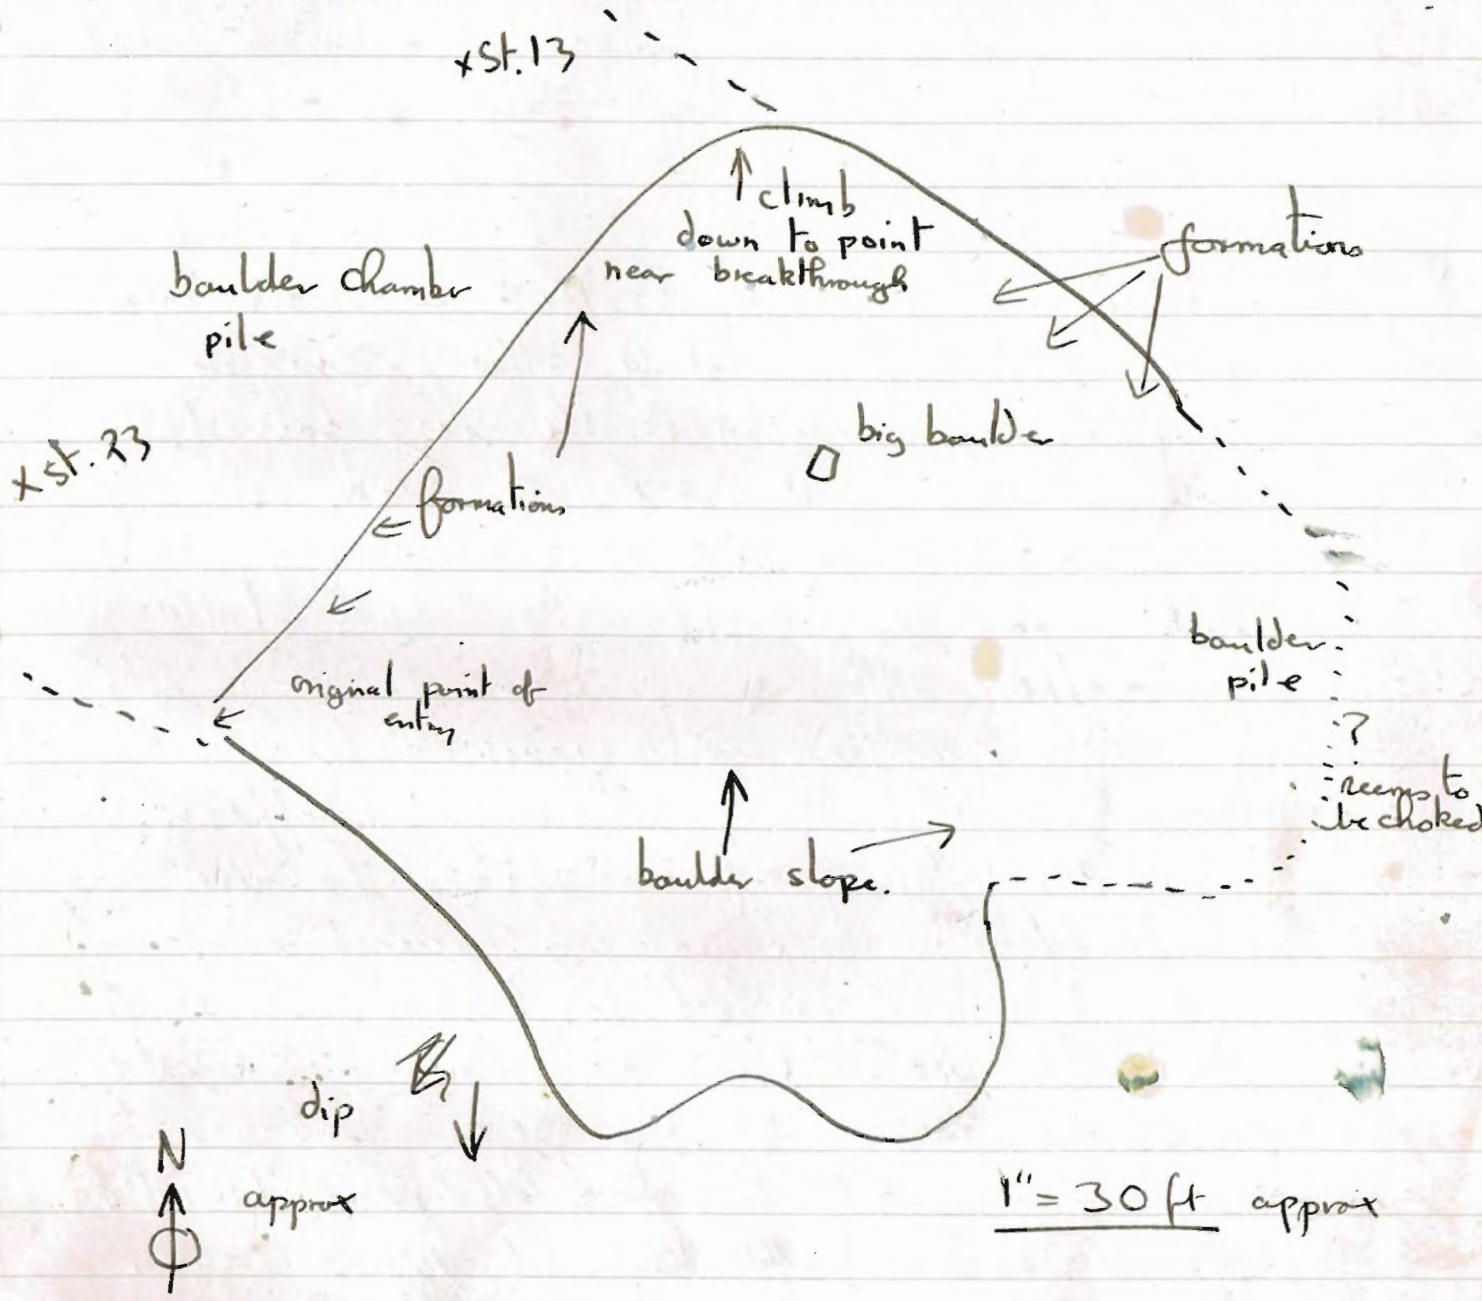 xSt.13
climb
down to point
near breakthrough
formations
boulder chamber
pile
big boulder
x st. 23
formations
boulder
pile
original point of
entry
?
seems to
be choked
boulder slope.
dip
N
approx
1" = 30 ft approx